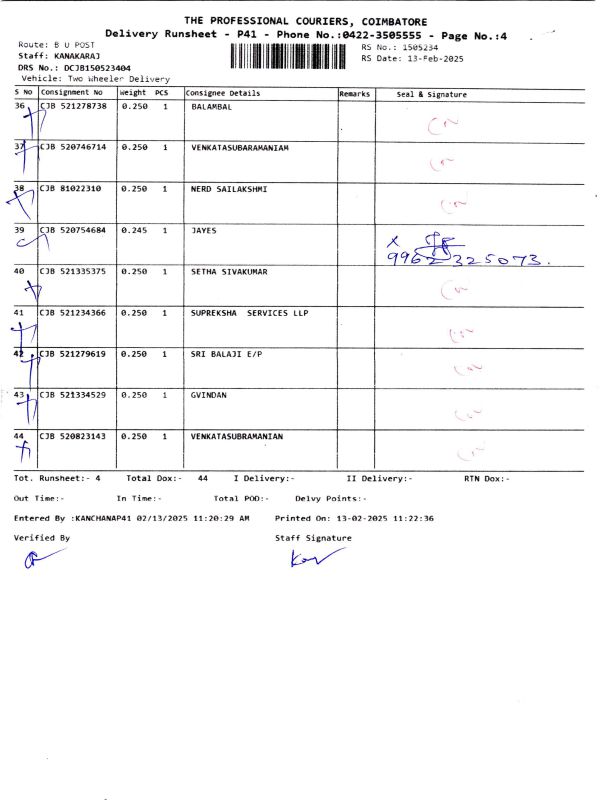 THE PROFESSIONAL COURIERS, COIMBATORE
Delivery Runsheet - P41 - Phone No.:0422-3505555 - Page No.:4
Route: B U POST
RS No.: 1505234
Staff: KANAKARAJ
RS Date: 13-Feb-2025
DRS No.: DCJB150523404
Vehicle: Two Wheeler Delivery
S No Consignment No Weight PCS Consignee Details Remarks Seal & Signature
36 CJB 521278738 0.250 1 BALAMBAL
37 CJB 520746714 0.250 1 VENKATASUBARAMANIAM
38 CJB 81022310 0.250 1 NERD SAILAKSHMI
39 CJB 520754684 0.245 1 JAYES
x
9962325073.
40 CJB 521335375 0.250 1 SETHA SIVAKUMAR
41 CJB 521234366 0.250 1 SUPREKSHA SERVICES LLP
42 CJB 521279619 0.250 1 SRI BALAJI E/P
43 CJB 521334529 0.250 1 GVINDAN
44 CJB 520823143 0.250 1 VENKATASUBRAMANIAN
Tot. Runsheet:- 4 Total Dox:- 44 I Delivery:- II Delivery:- RTN Dox:-
Out Time:- In Time:- Total POD:- Delvy Points:-
Entered By :KANCHANAP41 02/13/2025 11:20:29 AM Printed On: 13-02-2025 11:22:36
Verified By Staff Signature